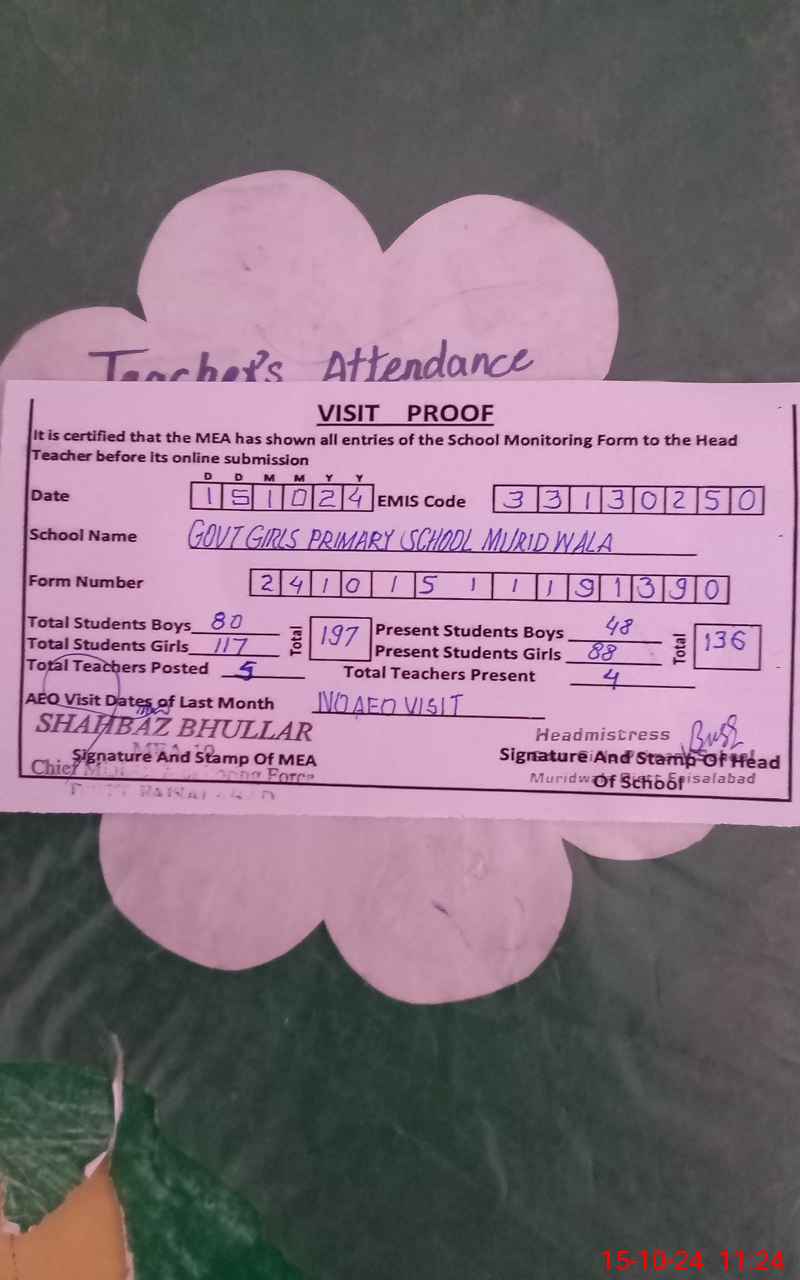 Teacher's Attendance
VISIT PROOF
It is certified that the MEA has shown all entries of the School Monitoring Form to the Head
Teacher before its online submission
D D M M Y Y
Date 1 5 1 0 2 4 EMIS Code 3 3 1 3 0 2 5 0
School Name GOVT GIRLS PRIMARY SCHOOL MURID WALA
Form Number 2 4 1 0 1 5 1 1 1 9 1 3 9 0
Total Students Boys 80 Total 197 Present Students Boys 48 Total 136
Total Students Girls 117 Present Students Girls 88
Total Teachers Posted 5 Total Teachers Present 4
AEO Visit Dates of Last Month NO AEO VISIT
SHAHBAZ BHULLAR Headmistress
Signature And Stamp Of MEA Signature And Stamp Of Head
Chief Force Muridwala Distt Faisalabad
Of School
15-10-24 11:24